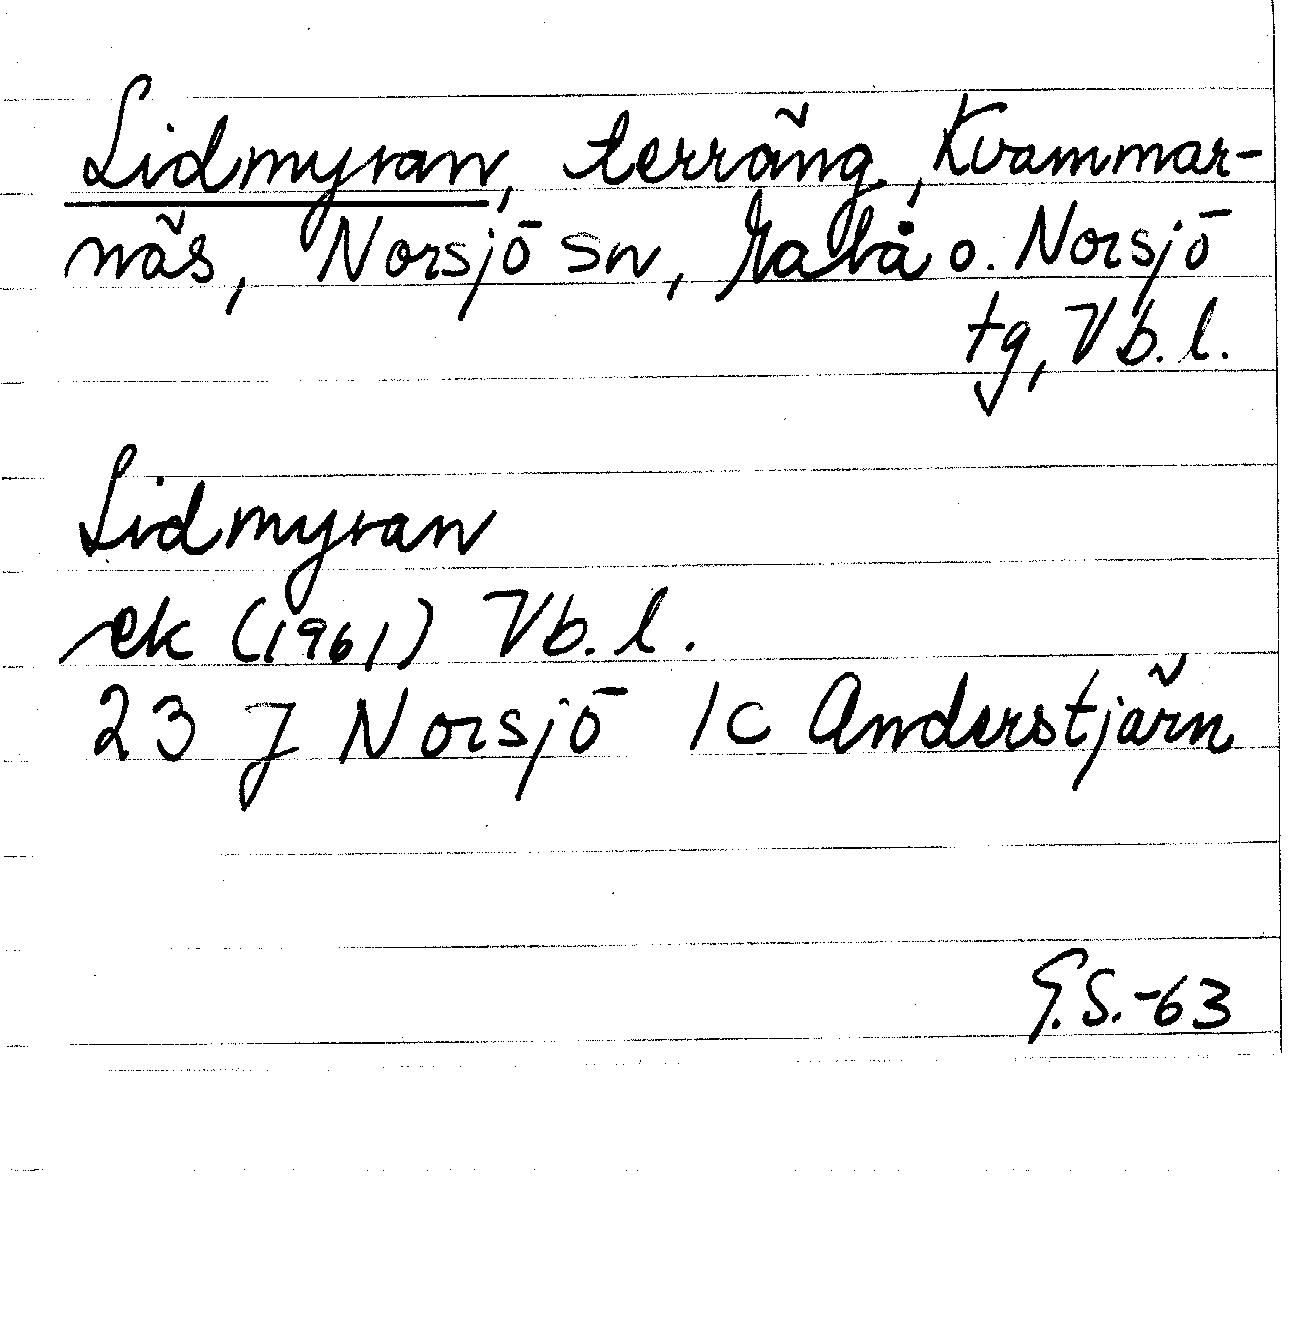 Lidmyran, terräng, Kvammar-
näs, Norsjö sn, Malå o. Norsjö
tg, Vb. l.
Lidmyran
ek (1961) Vb. l.
23 J Norsjö 1c Anderstjärn
G.S.-63